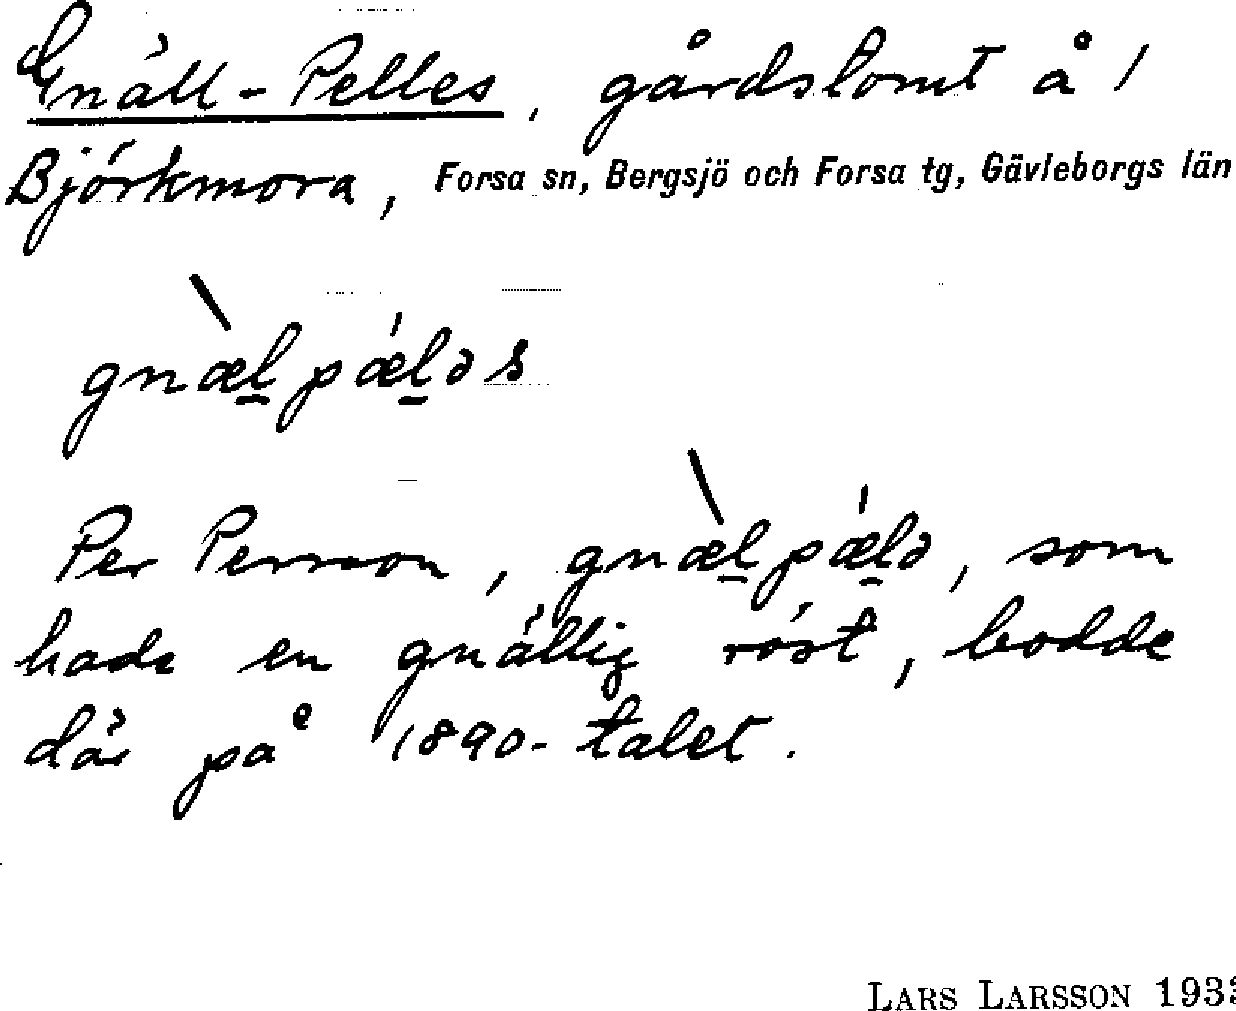 Gnäll-Pelles, gårdstomt å 1
Björkmora, Forsa sn, Bergsjö och Forsa tg, Gävleborgs län
gnæ̀l̠pǽl̠əs
Per Persson, gnæ̀l̠pǽl̠ə, som
hade en gnällig röst, bodde
där på 1890-talet.
LARS LARSSON 193